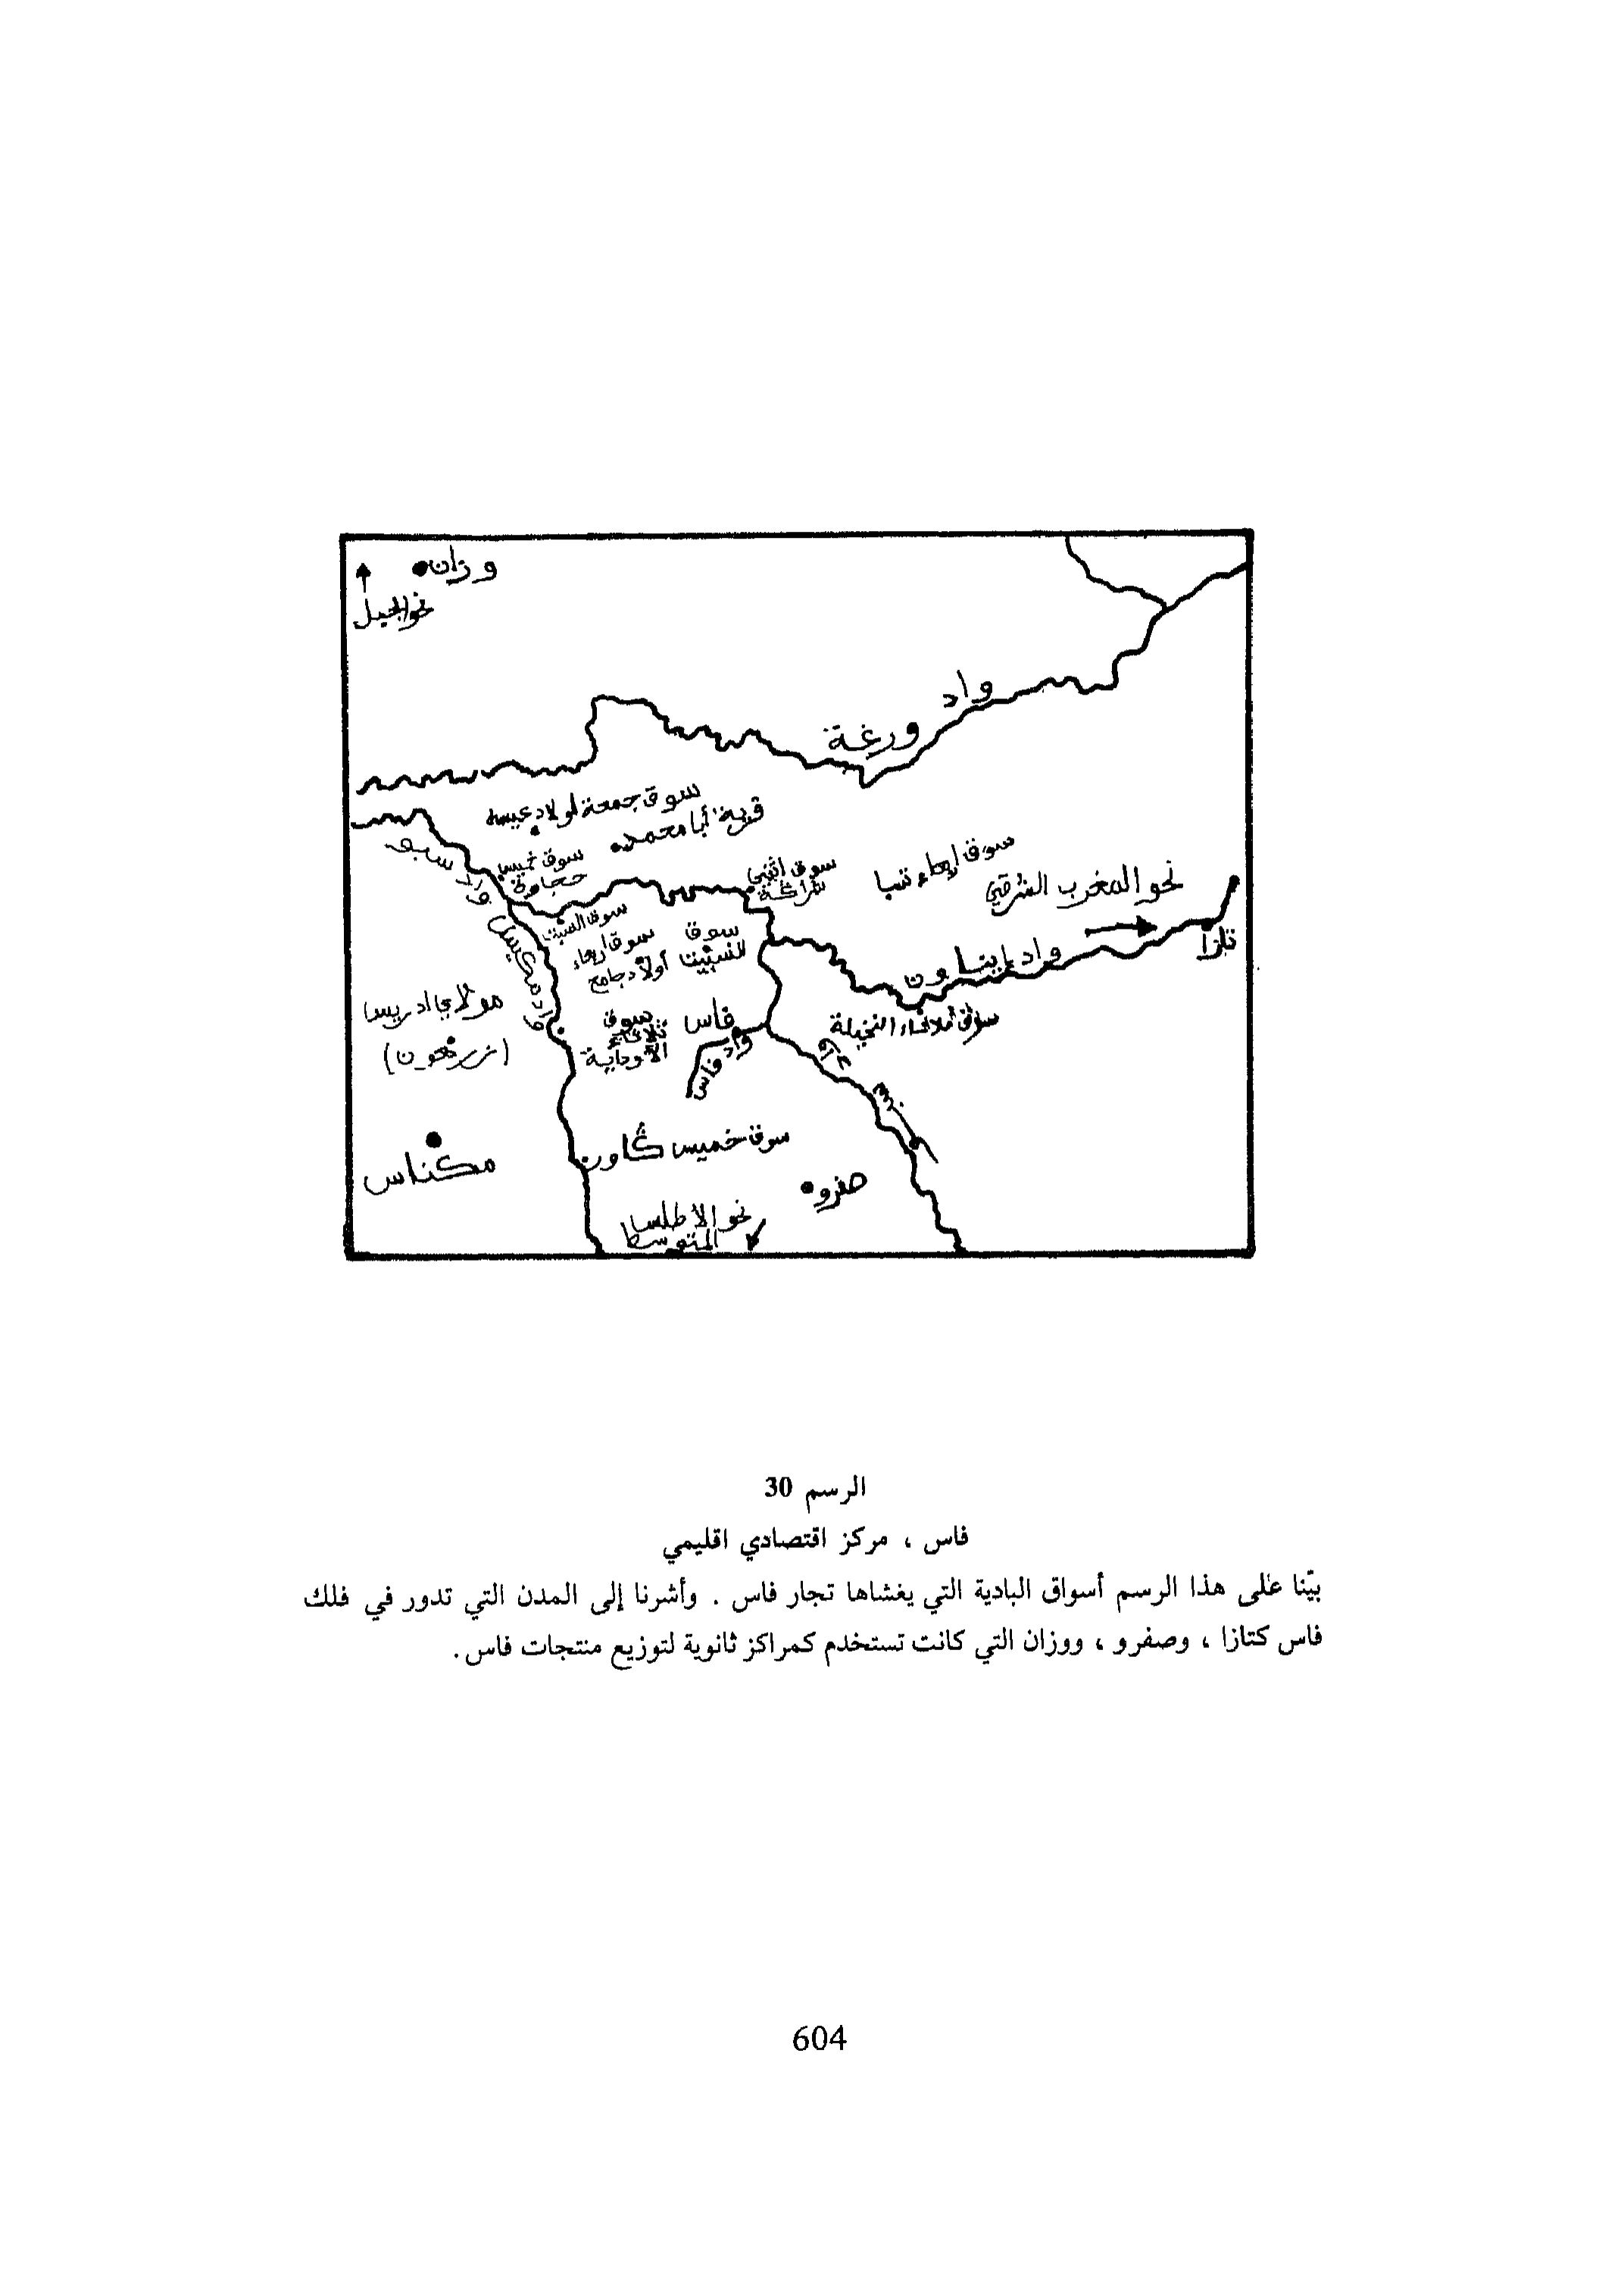 وزان
نحو الجبل
واد
ورغة
سوق جمعة أولاد عيسى
قرية أبا محمد
واد سبو
سوق خميس
حجاوة
سوق اثنين
شراگة
نحو المغرب الشرقي
تازا
سوق السبت
سوق
السبت
سوق اربعاء
أولاد جامع
واد مكس
مولاي ادريس
(زرهون)
فاس
واد فاس
سوق
ثلاثاء
الاودايية
سوق ثلاثاء النخيلة
سوق خميس گاون
مكناس
صفرو
نحو الأطلس
المتوسط
الرسم 30
فاس ، مركز اقتصادي اقليمي
بيّنا على هذا الرسم أسواق البادية التي يغشاها تجار فاس . وأشرنا إلى المدن التي تدور في فلك
فاس كتازا ، وصفرو ، ووزان التي كانت تستخدم كمراكز ثانوية لتوزيع منتجات فاس .
604